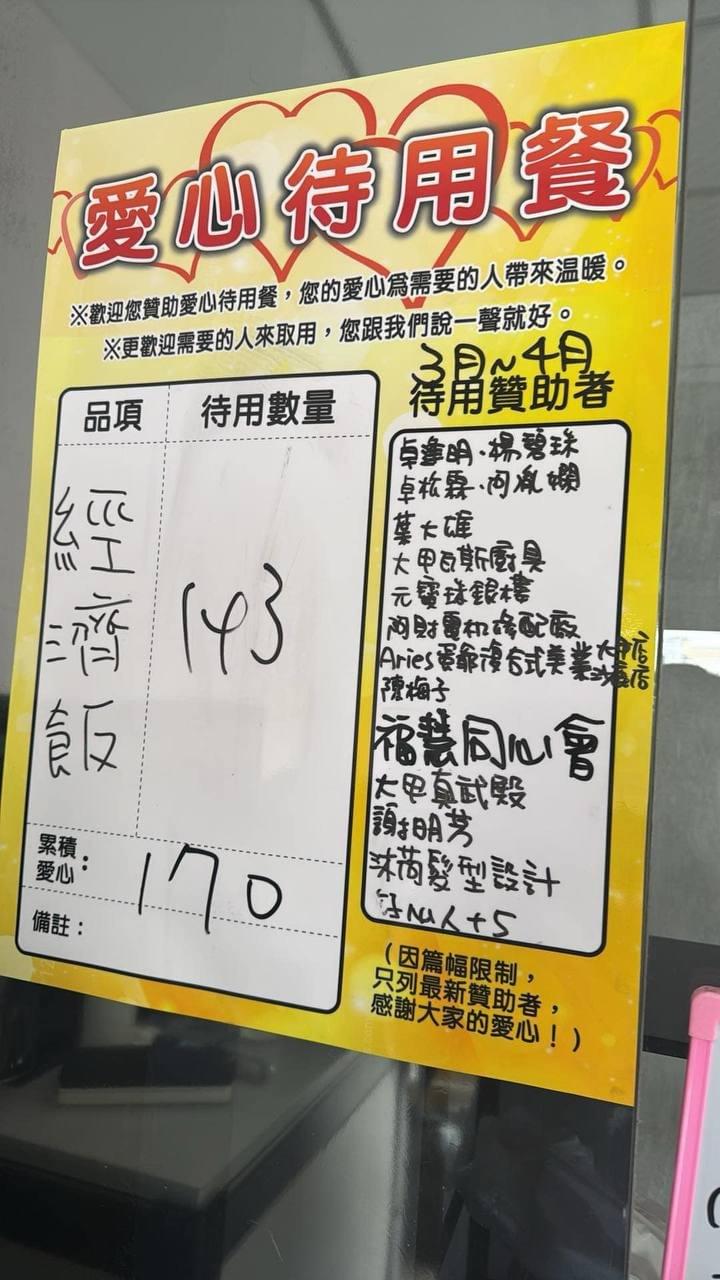 愛心待用餐
※歡迎您贊助愛心待用餐，您的愛心為需要的人帶來温暖。
※更歡迎需要的人來取用，您跟我們說一聲就好。
3月~4月
待用贊助者
品項 待用數量
經濟飯 143
累積愛心： 170
備註：
卓肇明．楊碧珠
卓松霖．
葉大雄
大甲瓦斯廚具
元寶珠銀樓
阿財電机修配廠
Aries 複合式美業大甲店
沙鹿店
陳梅子
福慧同心會
大甲真武殿
謝明芳
沐芮髮型設計
人+5
（因篇幅限制，
只列最新贊助者，
感謝大家的愛心！）